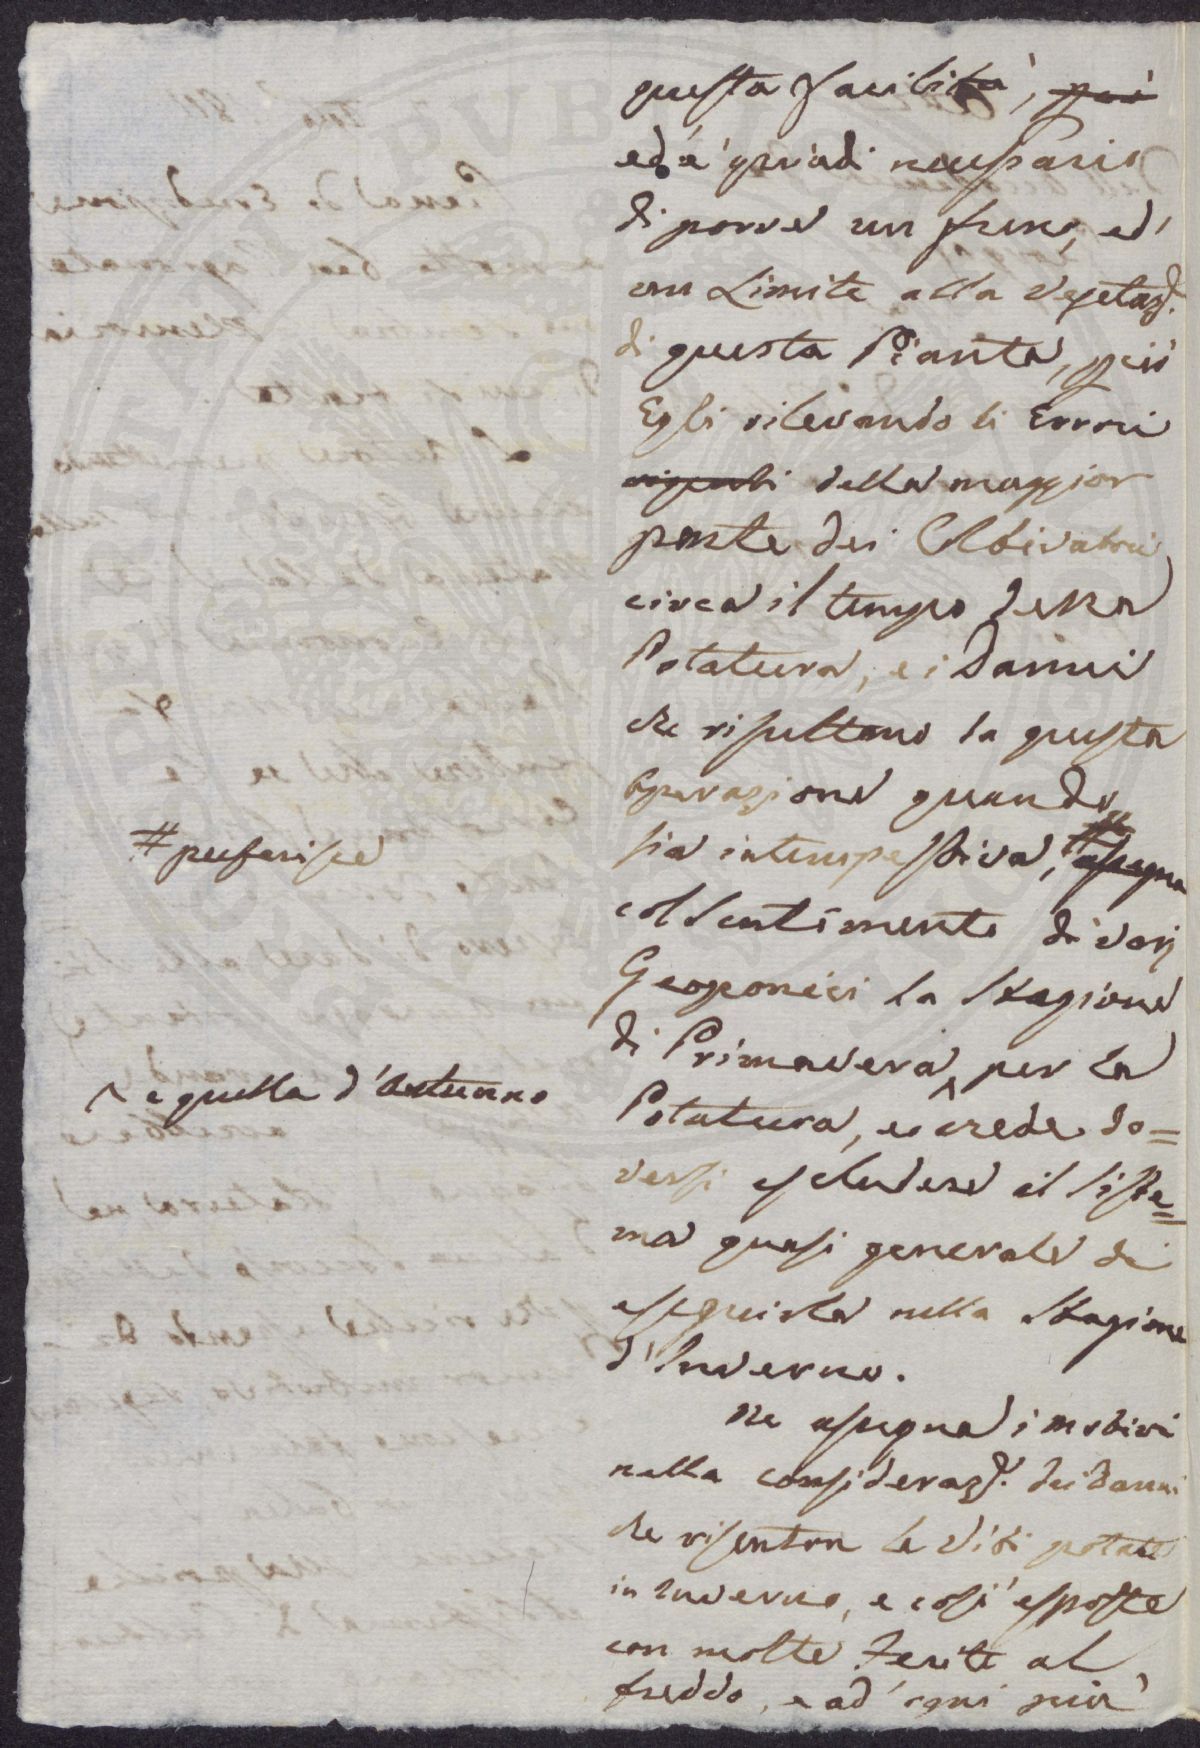 questa facilità, più
ed è quindi necessario
di porre un freno, ed
un Limite alla Vegetaz.e
di questa Pianta, più
Egli rilevando li Errori
vigenti della maggior
parte dei Coltivatori
circa il tempo della
Potatura, e i Danni
che risultano da questa
Operazione quando
sia intempestiva, # assegna
# preferisce
col sentimento di varj
Geoponici la Stagione
di Primavera ^ per la
^ e quella d'Autunno
Potatura, e crede do=
versi escludere il siste=
ma quasi generale di
eseguirla nella Stagione
d'Inverno.
Ne assegna i motivi
nella consideraz.e dei Danni
che risenton le Viti potate
in Inverno, e così esposte
con molte ferite al
freddo, e ad ogni più